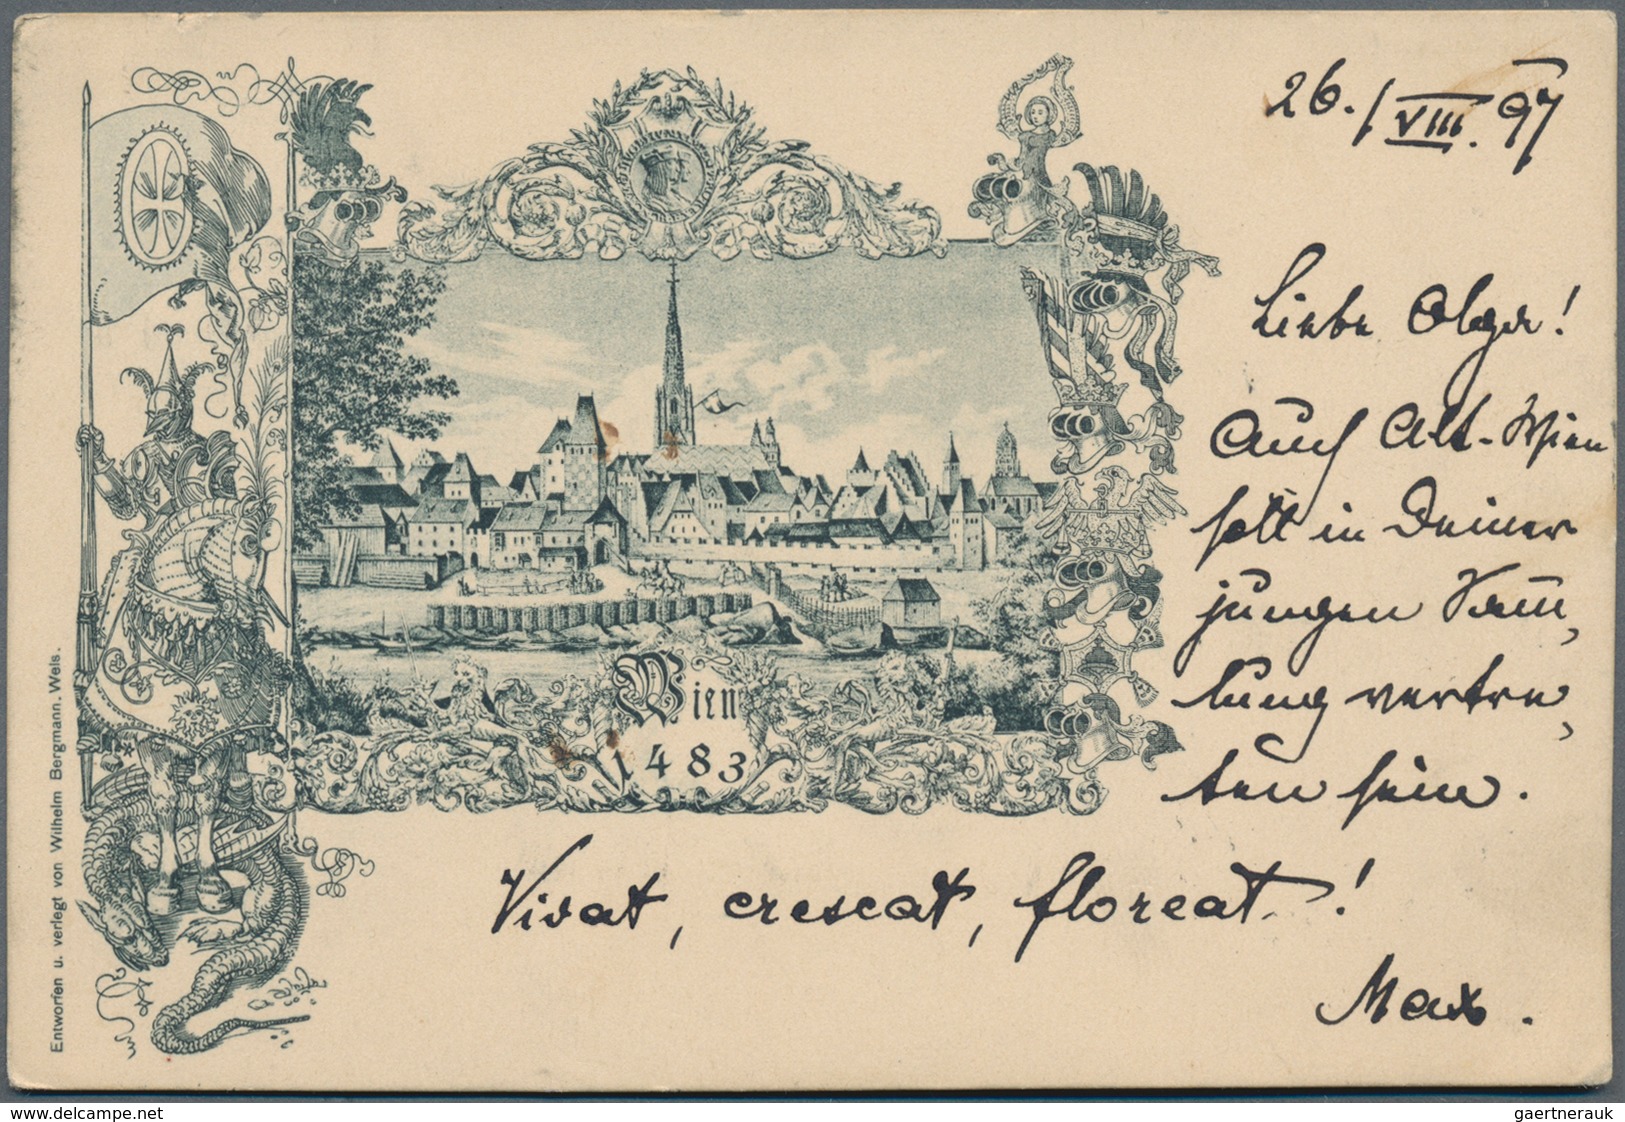 26./VIII. 97
Liebe Olga!
Auch Alt-Wien
soll in Deiner
jungen Samm,
lung vertre,
ten sein.
Vivat, crescat, floreat!
Max.
Wien
1483
Entworfen u. verlegt von Wilhelm Bergmann. Wels.
delcampe.net
gaertnerauk